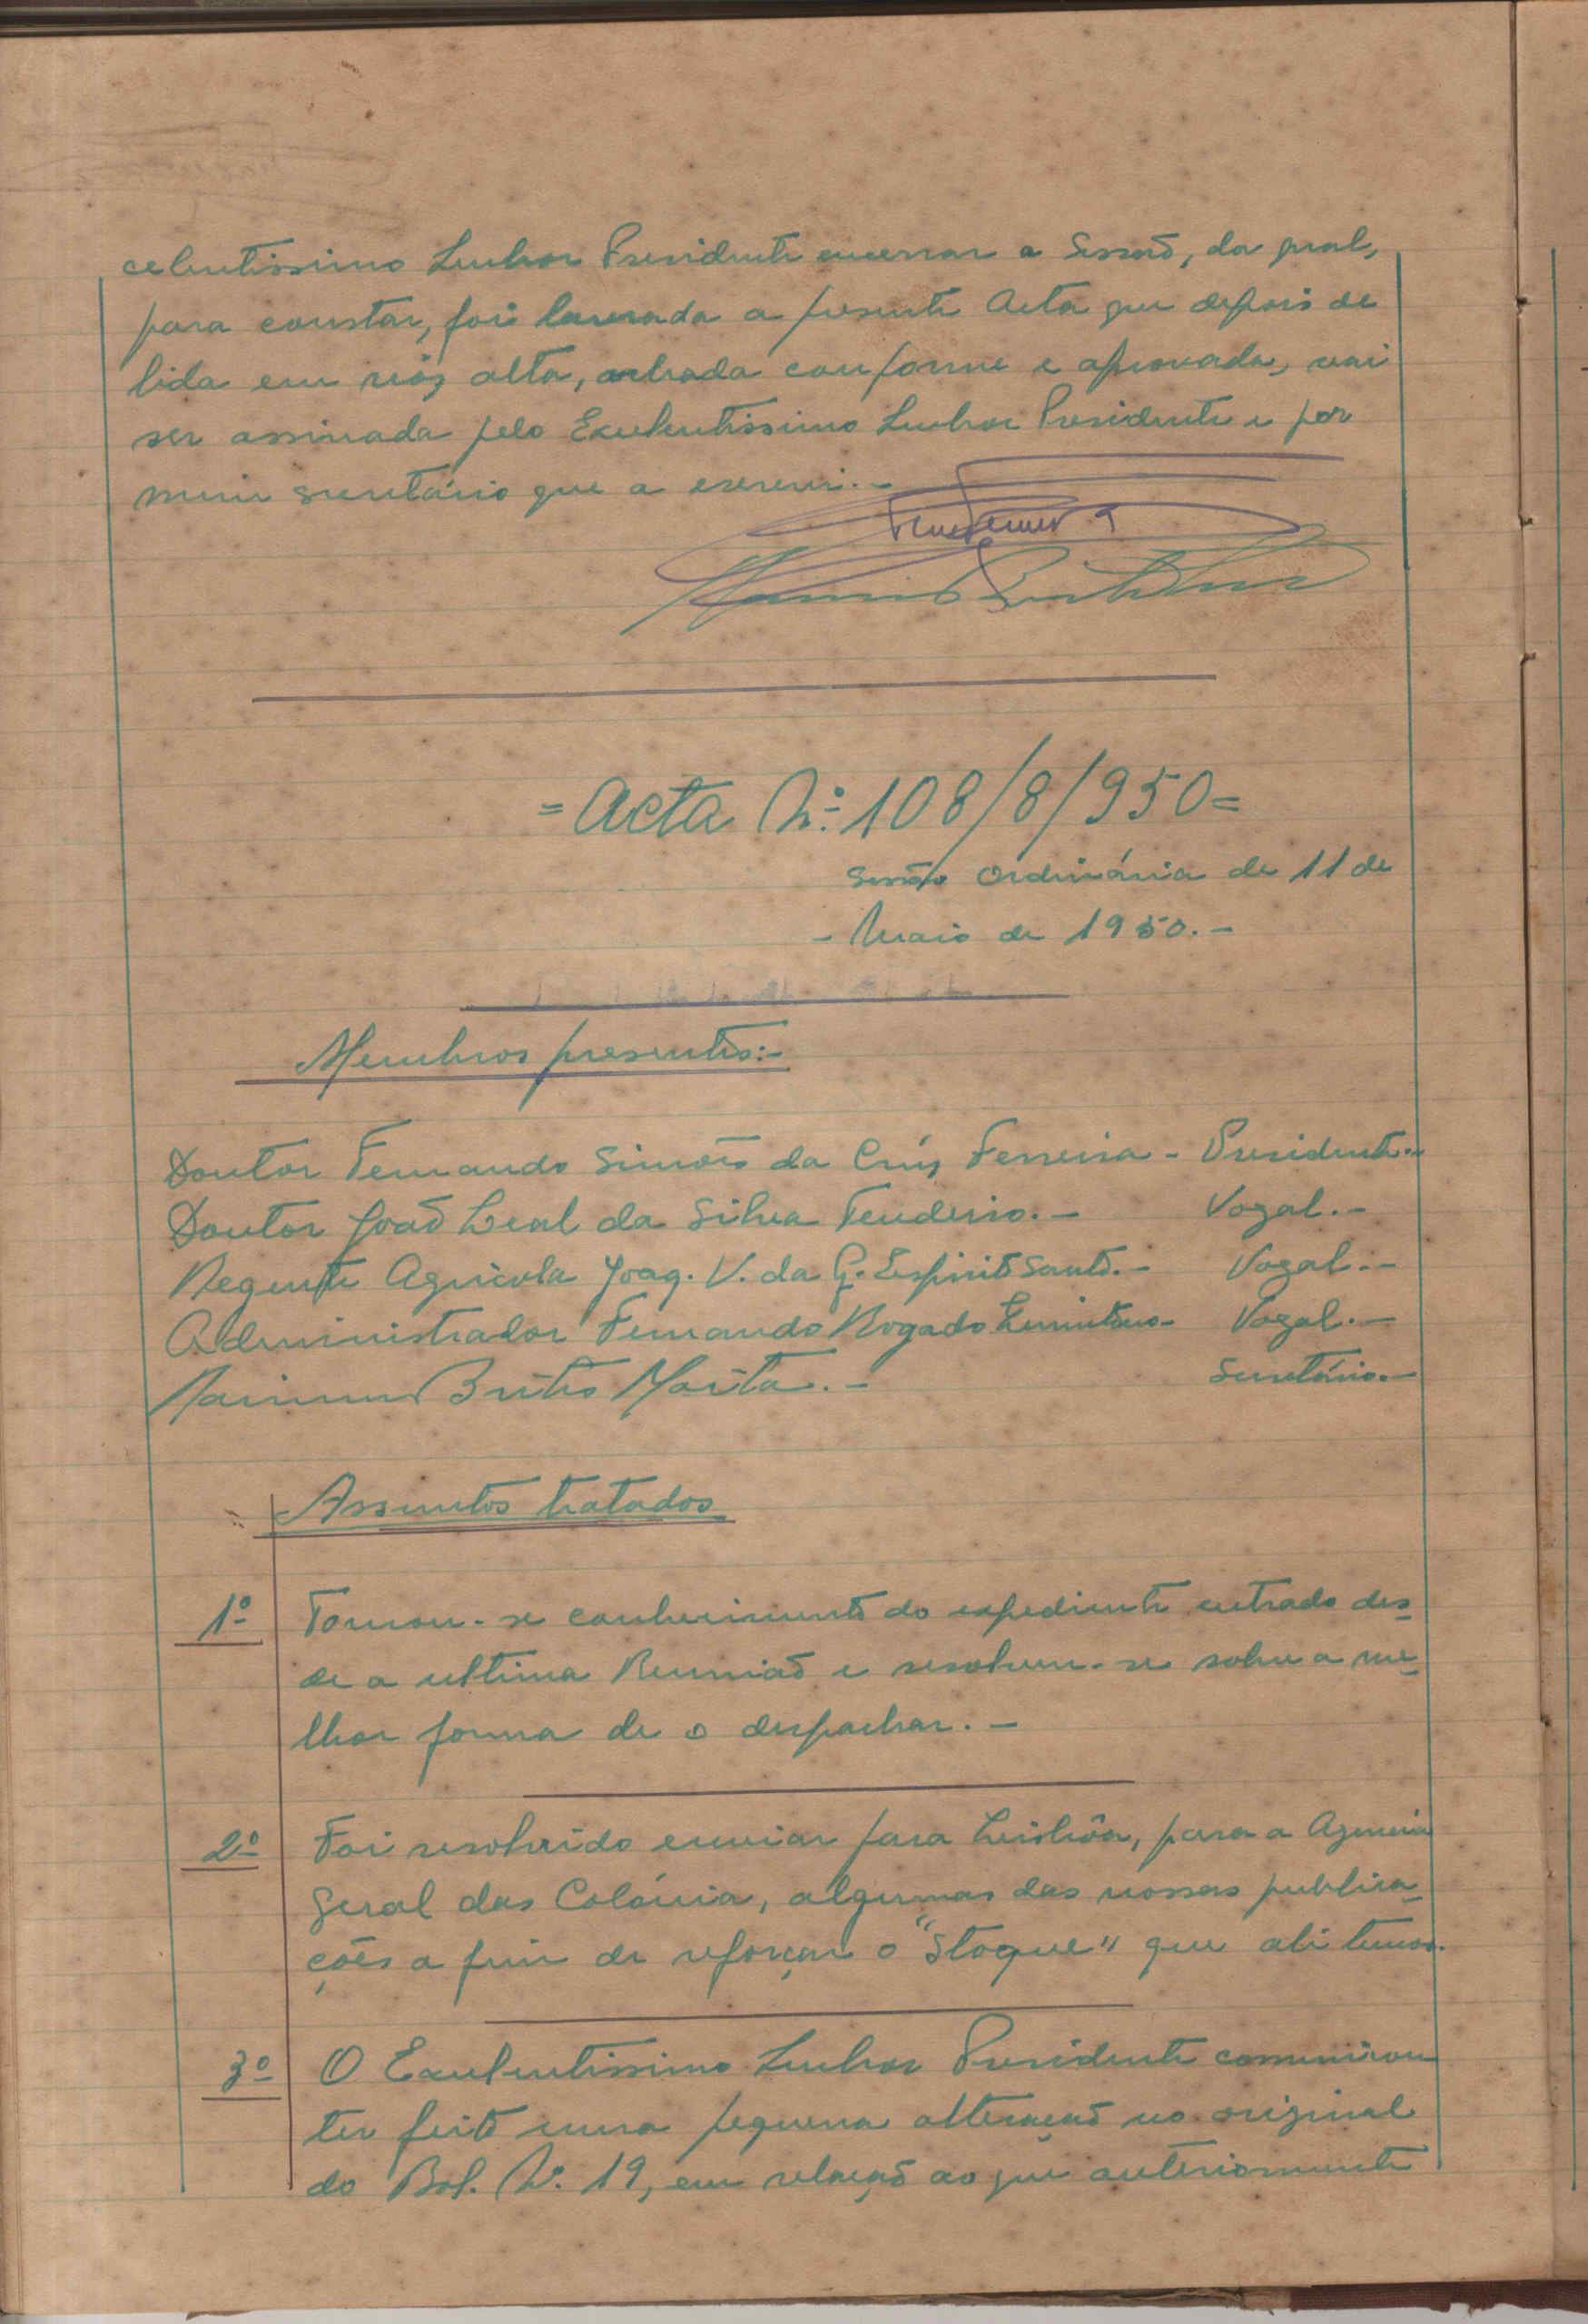 celentissimo Senhor Presidente encerrar a Sessaõ, da qual,
para constar, foi lavrada a presente Acta que depois de
lida em vóz alta, achada conforme e aprovada, vai
ser assinada pelo Excelentissimo Senhor Presidente e por
mim secretário que a escrevi.-
= Acta N.º 108/8/950 =
Sessão Ordinária de 11 de
- Maio de 1950. -
Membros presentes:-
Doutor Fernando Simões da Crúz Ferreira - Presidente.-
Doutor Joaõ Leal da Silva Tendeiro. - Vogal. -
Regente Agricola Joaq. V. da G. Espirito Santo. - Vogal. -
Administrador Fernando Rogado - Vogal. -
Brito Marta. - Secretário. -
Assuntos tratados
1º Tomou-se conhecimento do expediente entrado des-
de a ultima Reuniaõ e resolveu-se sobre a me-
lhor forma de o despachar. -
2º Foi resolvido enviar para Lisbôa, para a Agencia
Geral das Colónia, algumas das nossas publica-
ções a fim de reforçar o "Stoque" que ali temos.
3º O Excelentissimo Senhor Presidente comunicou
ter feito uma pequena alteraçaõ no original
do Bol. N.º 19, em relaçaõ ao que anteriormente